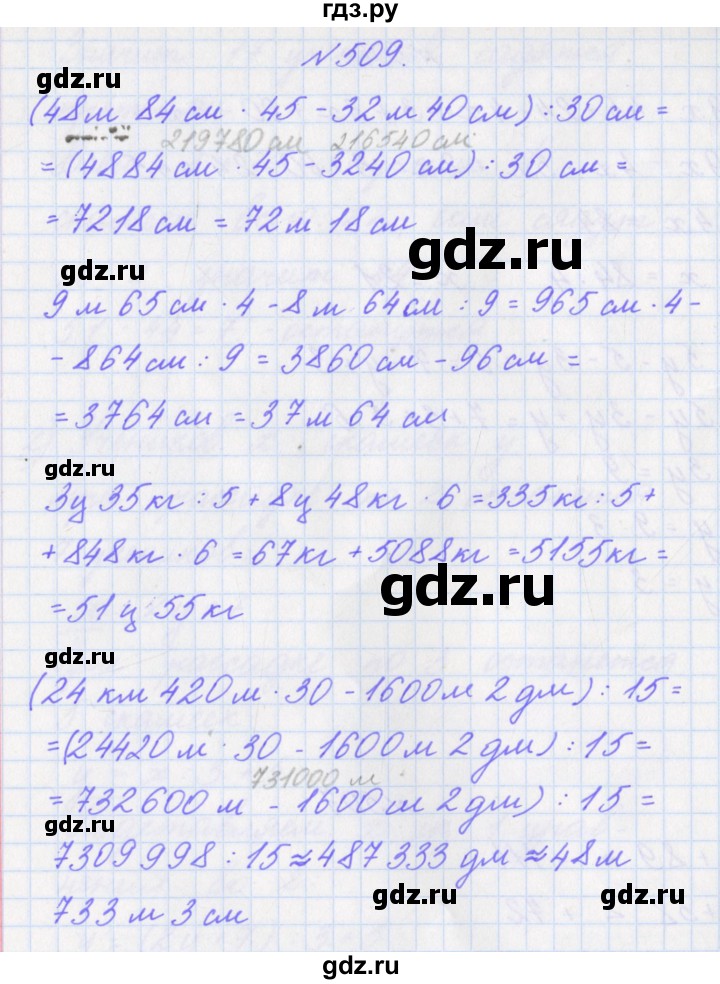 гдз.ру
№509.
gdz.ru
(48 м 84 см · 45 - 32 м 40 см) : 30 см =
219780 см 216540 см
= (4884 см · 45 - 3240 см) : 30 см =
= 7218 см = 72 м 18 см
gdz.ru
gdz.ru
9 м 65 см · 4 - 8 м 64 см : 9 = 965 см · 4 -
- 864 см : 9 = 3860 см - 96 см =
= 3764 см = 37 м 64 см
gdz.ru
3 ц 35 кг : 5 + 8 ц 48 кг · 6 = 335 кг : 5 +
+ 848 кг · 6 = 67 кг + 5088 кг = 5155 кг =
gdz.ru
= 51 ц 55 кг
gdz.ru
(24 км 420 м · 30 - 1600 м 2 дм) : 15 =
= (24420 м · 30 - 1600 м 2 дм) : 15 =
731000 м
= 732600 м - 1600 м 2 дм) : 15 =
gdz.ru
7309998 : 15 ≈ 487333 дм ≈ 48 м
gdz.ru
gdz.ru
733 м 3 см
gdz.ru